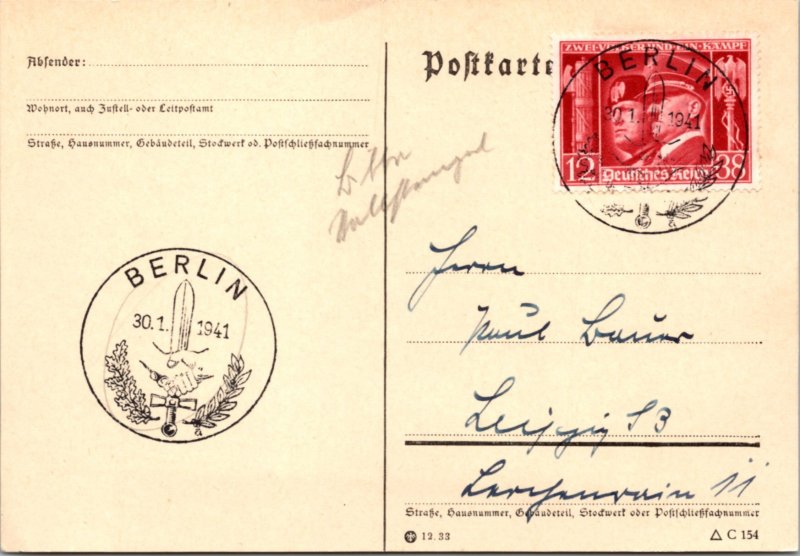 Absender:
Wohnort, auch Zustell- oder Leitpostamt
Straße, Hausnummer, Gebäudeteil, Stockwerk od. Postschließfachnummer
Postkarte
ZWEI VÖLKER UND EIN KAMPF
12 Deutsches Reich 38
BERLIN
30.1. 1941
a
Bitte
BERLIN
30.1. 1941
a
Herrn
Paul Bauer
Leipzig S3
Lerchenrain 11
Straße, Hausnummer, Gebäudeteil, Stockwerk oder Postschließfachnummer
12.33
C 154